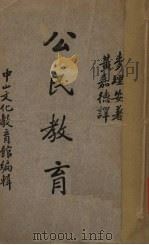 麥理安著
黃嘉德譯
公民教育
中山文化教育館編輯